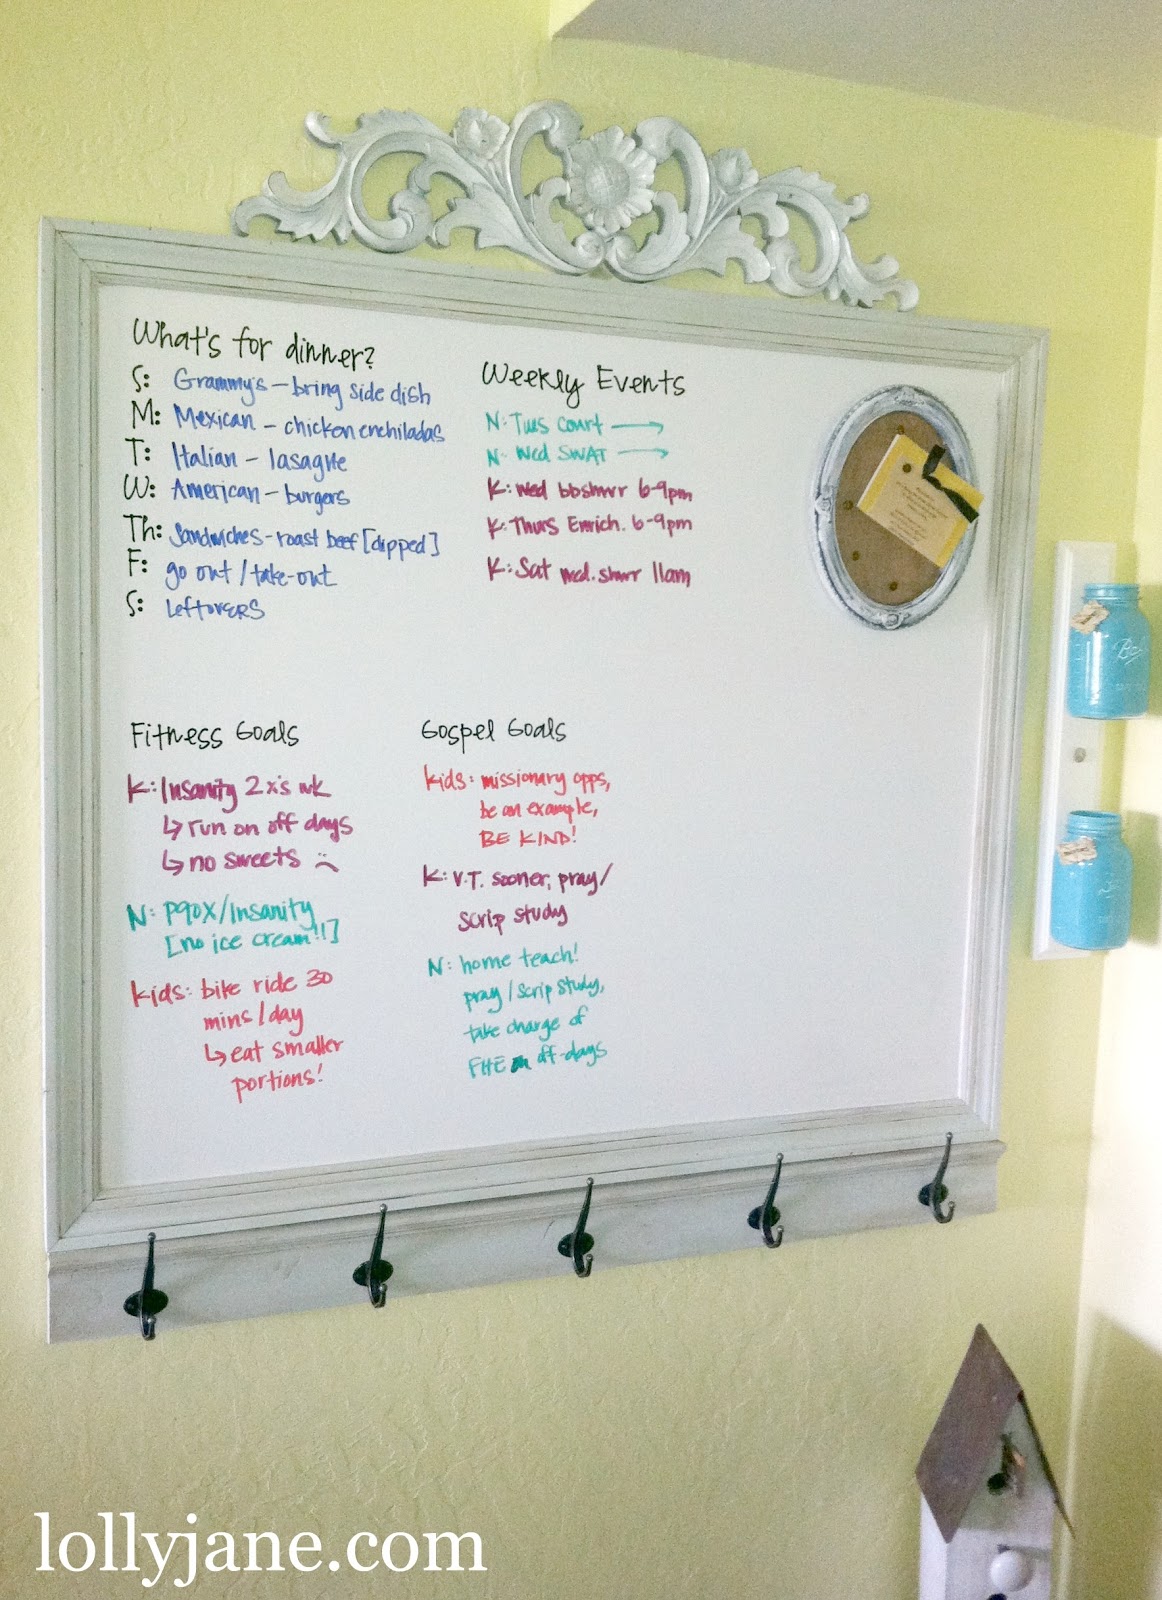 What's for dinner?
S: Grammy's - bring side dish
M: Mexican - chicken enchiladas
T: Italian - lasagne
W: American - burgers
Th: Sandwiches - roast beef [dipped]
F: go out / take-out
S: LeftovERS
Weekly Events
N: Tues court →
N: Wed SWAT →
K: Wed bbshwr 6-9pm
K: Thurs Enrich. 6-9pm
K: Sat wed. shwr 11am
Fitness Goals
K: Insanity 2x's wk
↳ run on off days
↳ no sweets :(
N: P90X/Insanity
[no ice cream!!]
kids: bike ride 30
mins/day
↳ eat smaller
portions!
Gospel Goals
kids: missionary opps,
be an example,
BE KIND!
K: V.T. sooner, pray/
scrip study
N: home teach!
pray/scrip study,
take charge of
FHE on off-days
Ball
lollyjane.com